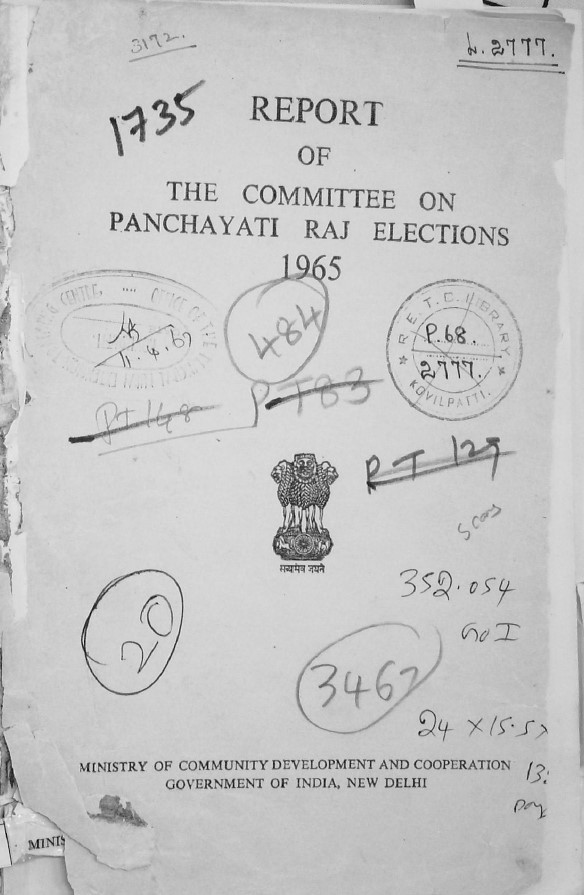 3172.
L. 2777.
1735
REPORT
OF
THE COMMITTEE ON
PANCHAYATI RAJ ELECTIONS
1965
CENTRE, .... OFFICE OF THE
11.4.67
484
R. E. T. C. LIBRARY
P.68.
2777.
★ KOVILPATTI. ★
PT 148
PT 83
PT 129
सत्यमेव जयते
352.054
GOI
20
3467
24 X 15.5
MINISTRY OF COMMUNITY DEVELOPMENT AND COOPERATION
GOVERNMENT OF INDIA, NEW DELHI
13:
MINIS